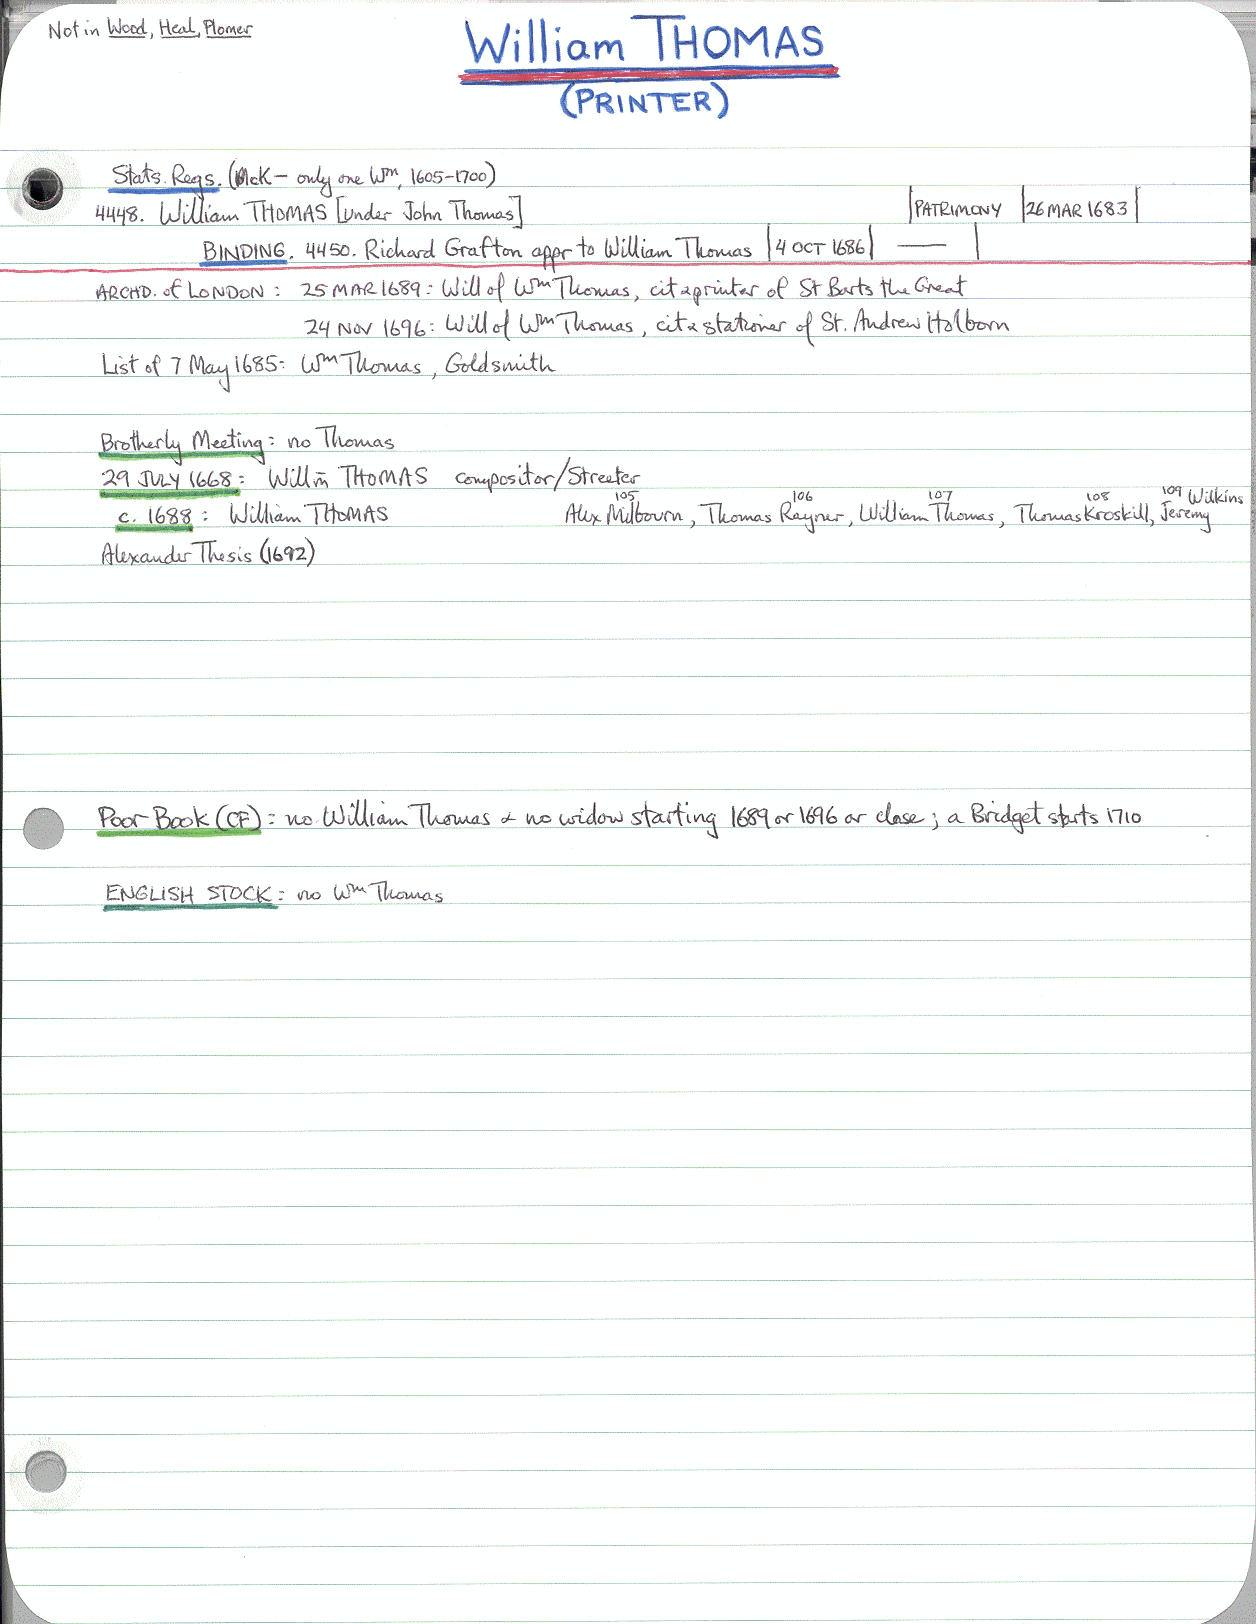 Not in Wood, Heal, Plomer
William THOMAS
(PRINTER)
Stats. Regs. (McK – only one Wm, 1605-1700)
4448. William THOMAS [under John Thomas] | PATRIMONY | 26 MAR 1683 |
BINDING. 4450. Richard Grafton appr to William Thomas | 4 OCT 1686 | — |
ARCHD. of LONDON : 25 MAR 1689 : Will of Wm Thomas, cit & printer of St Barts the Great
24 NOV 1696 : Will of Wm Thomas, cit & stationer of St. Andrew Holborn
List of 7 May 1685 : Wm Thomas, Goldsmith
Brotherly Meeting : no Thomas
29 JULY 1668 : Willm THOMAS compositor/Streater
105 106 107 108 109 Wilkins
c. 1688 : William THOMAS Alex Milbourn, Thomas Rayner, William Thomas, Thomas Kroskill, Jeremy
Alexander Thesis (1692)
Poor Book (CF) : no William Thomas & no widow starting 1689 or 1696 or close ; a Bridget starts 1710
ENGLISH STOCK : no Wm Thomas